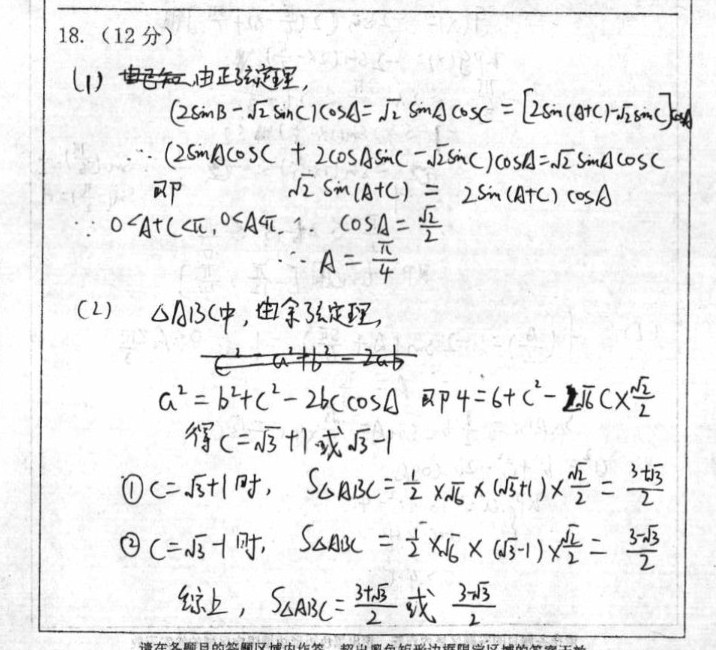 18.（12分）
(1) 由正弦定理,
(2sinB-√2sinC)cosA=√2sinAcosC=[2sin(A+C)-√2sinC]cosA
∴(2sinAcosC+2cosAsinC-√2sinC)cosA=√2sinAcosC
即 √2sin(A+C)=2sin(A+C)cosA
∵0<A+C<π,0<A<π. ∴cosA=√2/2
∴A=π/4
(2) △ABC中,由余弦定理,
c²=a²+b²-2ab
a²=b²+c²-2bccosA 即4=6+c²-2√6c×√2/2
得c=√3+1或√3-1
①c=√3+1时, S△ABC=1/2×√6×(√3+1)×√2/2=(3+√3)/2
②c=√3-1时, S△ABC=1/2×√6×(√3-1)×√2/2=(3-√3)/2
综上, S△ABC=(3+√3)/2或(3-√3)/2
请在各题目的答题区域内作答，超出黑色矩形边框限定区域的答案无效